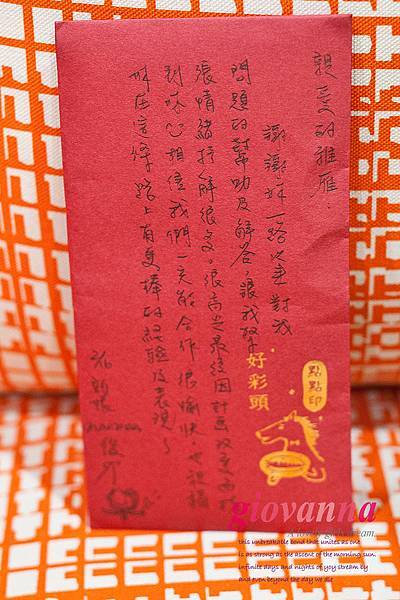 親愛的雅雁:
謝謝妳一路以來對我
問題的幫助及解答,讓我緊
張情緒排解很多。很高興最後因計畫改變而
到妳 相信我們一定能合作很愉快。也祝福
妳在這條路上有更棒的經驗及表現~
祝 新娘
俊
好彩頭
點點印
giovanna
this unbreakable bond that unites as one
is as strong as the ascent of the morning sun.
infinite days and nights of yoy stream by
and even beyond the day we die